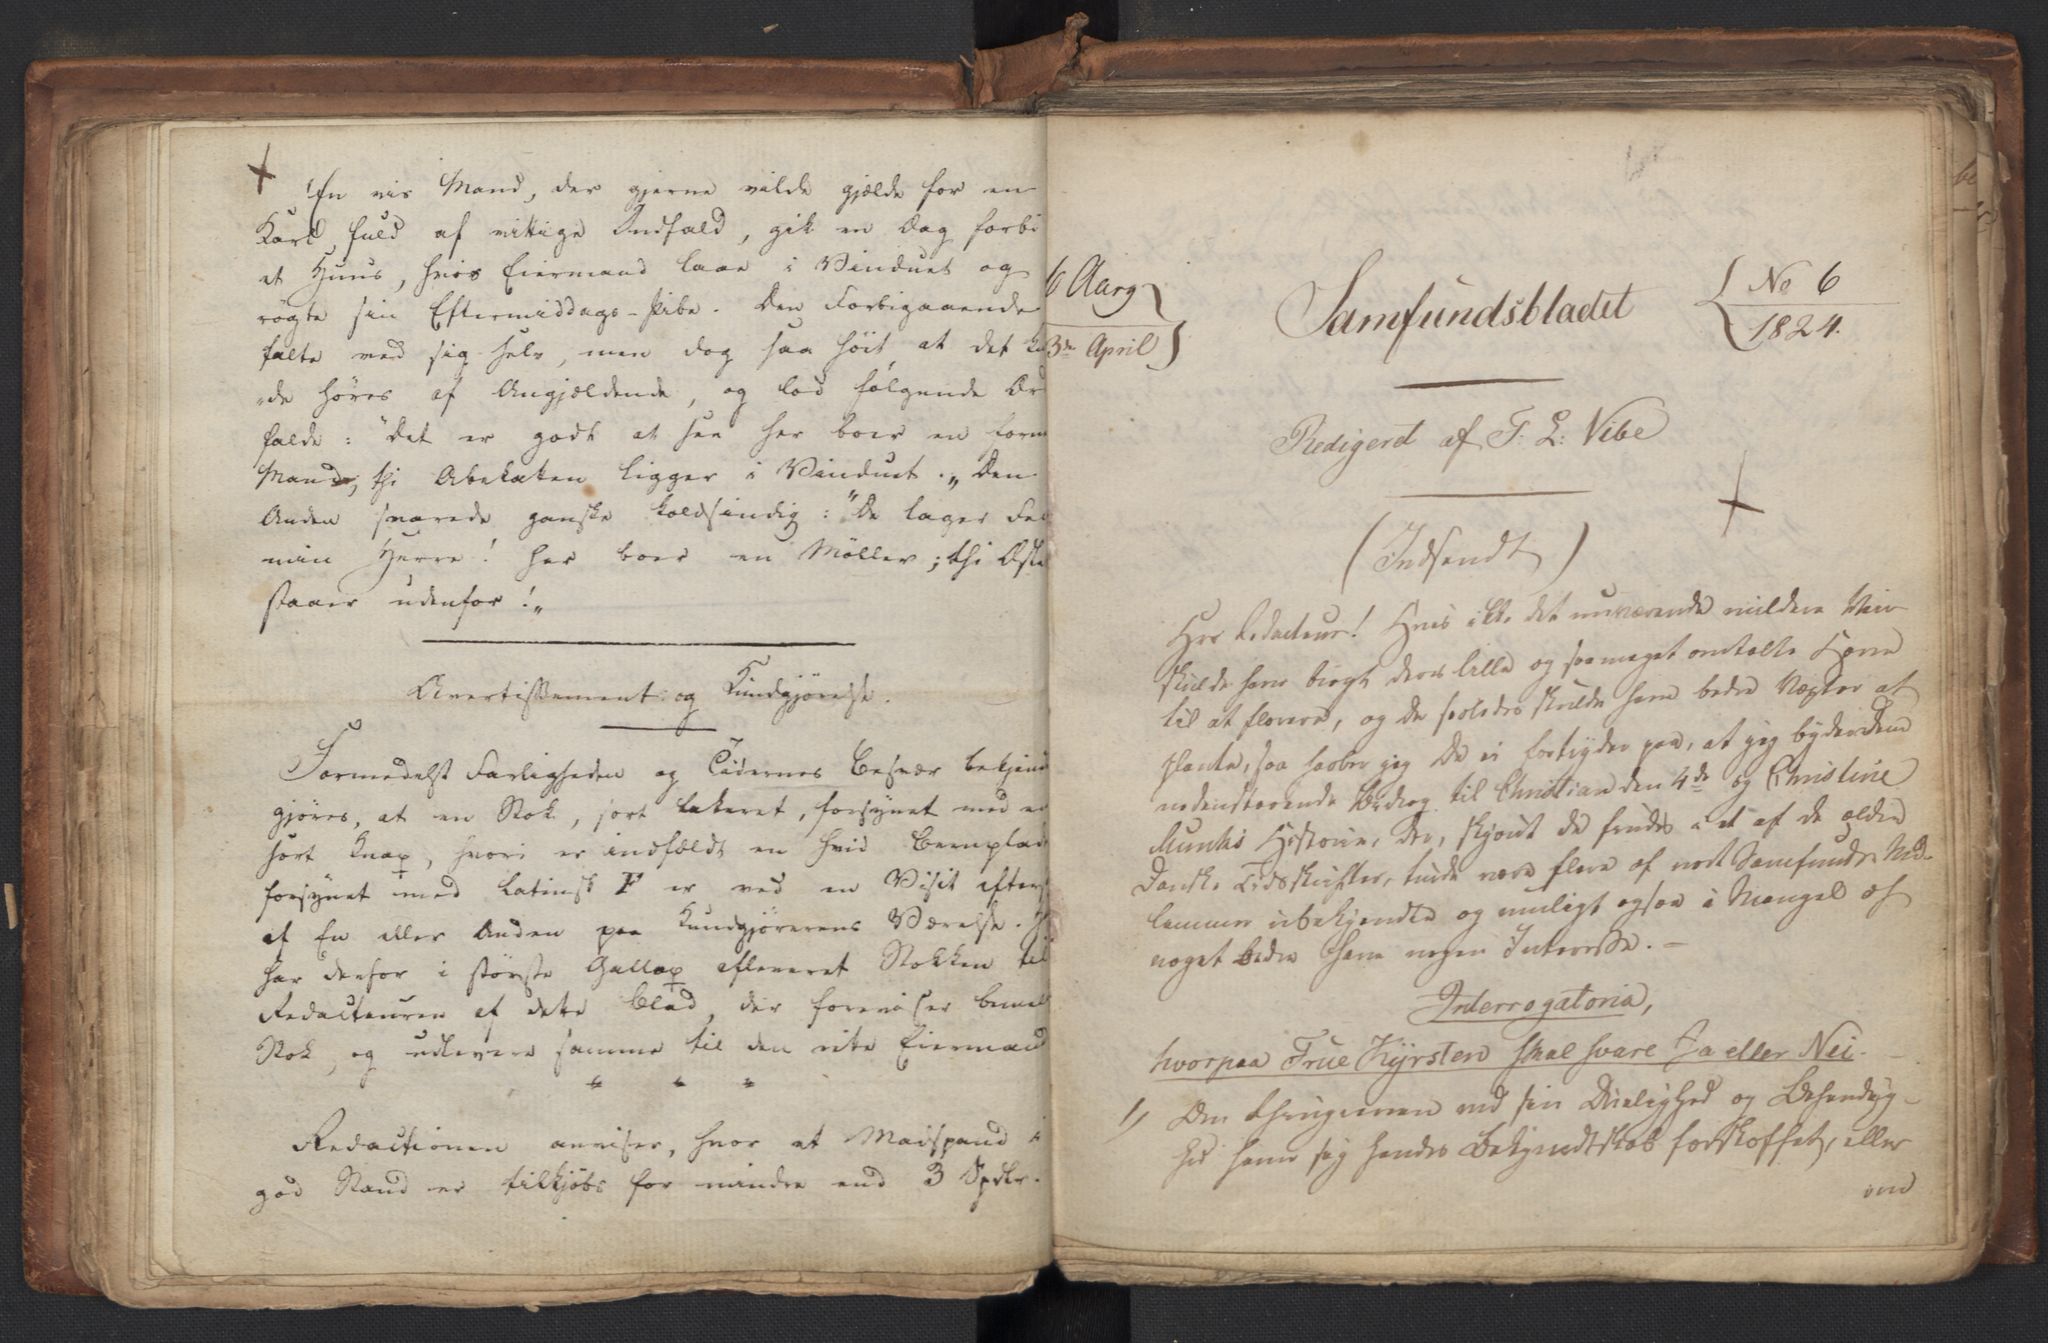 En vis Mand, der gjerne vilde gjælde for en
Karl, fuld af vittige Indfald, gik en Dag forbi
et Huus, hvis Eiermand laae i Vinduet og
røgte sin Eftermiddags-Pibe. Den Forbigaaende
talte ved sig selv, men dog saa høit, at det ku
de høres af Angjældende, og lod følgende Or
falde: "Det er godt at see her boer en form
Mand, thi Abekatten ligger i Vinduet.„ Den
Anden svarede ganske koldsindig: "De tager Fei
min Herre! her boer en Møller; thi Æsle
staaer udenfor!„
Avertissement og Kundgjørelse.
Formedelst Farligheden og Tidernes Besvær bekjend
gjøres, at en Stok, sort lakeret, forsynet med en
sort Knap, hvori er indfældt en hvid Beenplade
forsynet med latinsk F er ved en Visit efterl
af En eller Anden paa Kundgjørerens Værelse. J
har denfor i største Gallop afleveret Stokken til
Redacteuren af dette Blad, der foreviser bemel
Stok, og udlevere samme til den rette Eiermand
" " "
Redactionen anviser, hvor et Madspand i
god Stand er tilkjøbs for mindre end 3 Spdlr.
6 Aarg
3de April
Samfundsbladet
No 6
1824.
Redigeret af F: L: Vibe
(Indsendt)
Hrr Redacteur! Hvis ikke det nuværende mildere Veir
skulde have bragt deres lille og saameget omtalte Have
til at florere, og De saaledes skulde have bedre Vexter at
plante, saa haaber jeg De ei fortryder paa, at jeg byder Dem
nedenstaaende Bidrag til Christian den 4de og Christine
Munks Historie, der, skjøndt de findes i et af de ældre
Danske Tidsskrifter, turde være flere af vort Samfunds Med-
lemmer ubekjendte og muligt ogsaa i Mangel af
noget bedre have nogen Interesse. —
Interrogatoria,
hvorpaa Frue Kyrsten skal svare Ja eller Nei. —
1, Om Rhingreven ved sin Duelighed og Behændig-
hed haver sig hendes Bekjendtskab forskaffet, eller
om